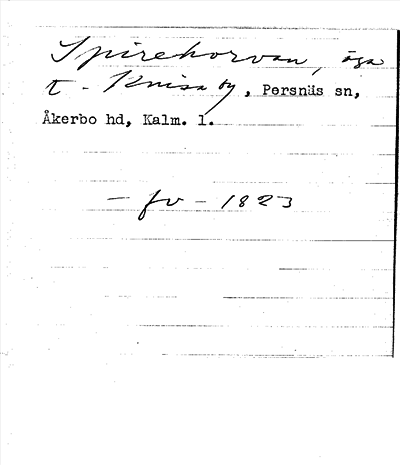 Spirehorvan, äga
t. Knisa by, Persnäs sn,
Åkerbo hd, Kalm. l.
- fv - 1823